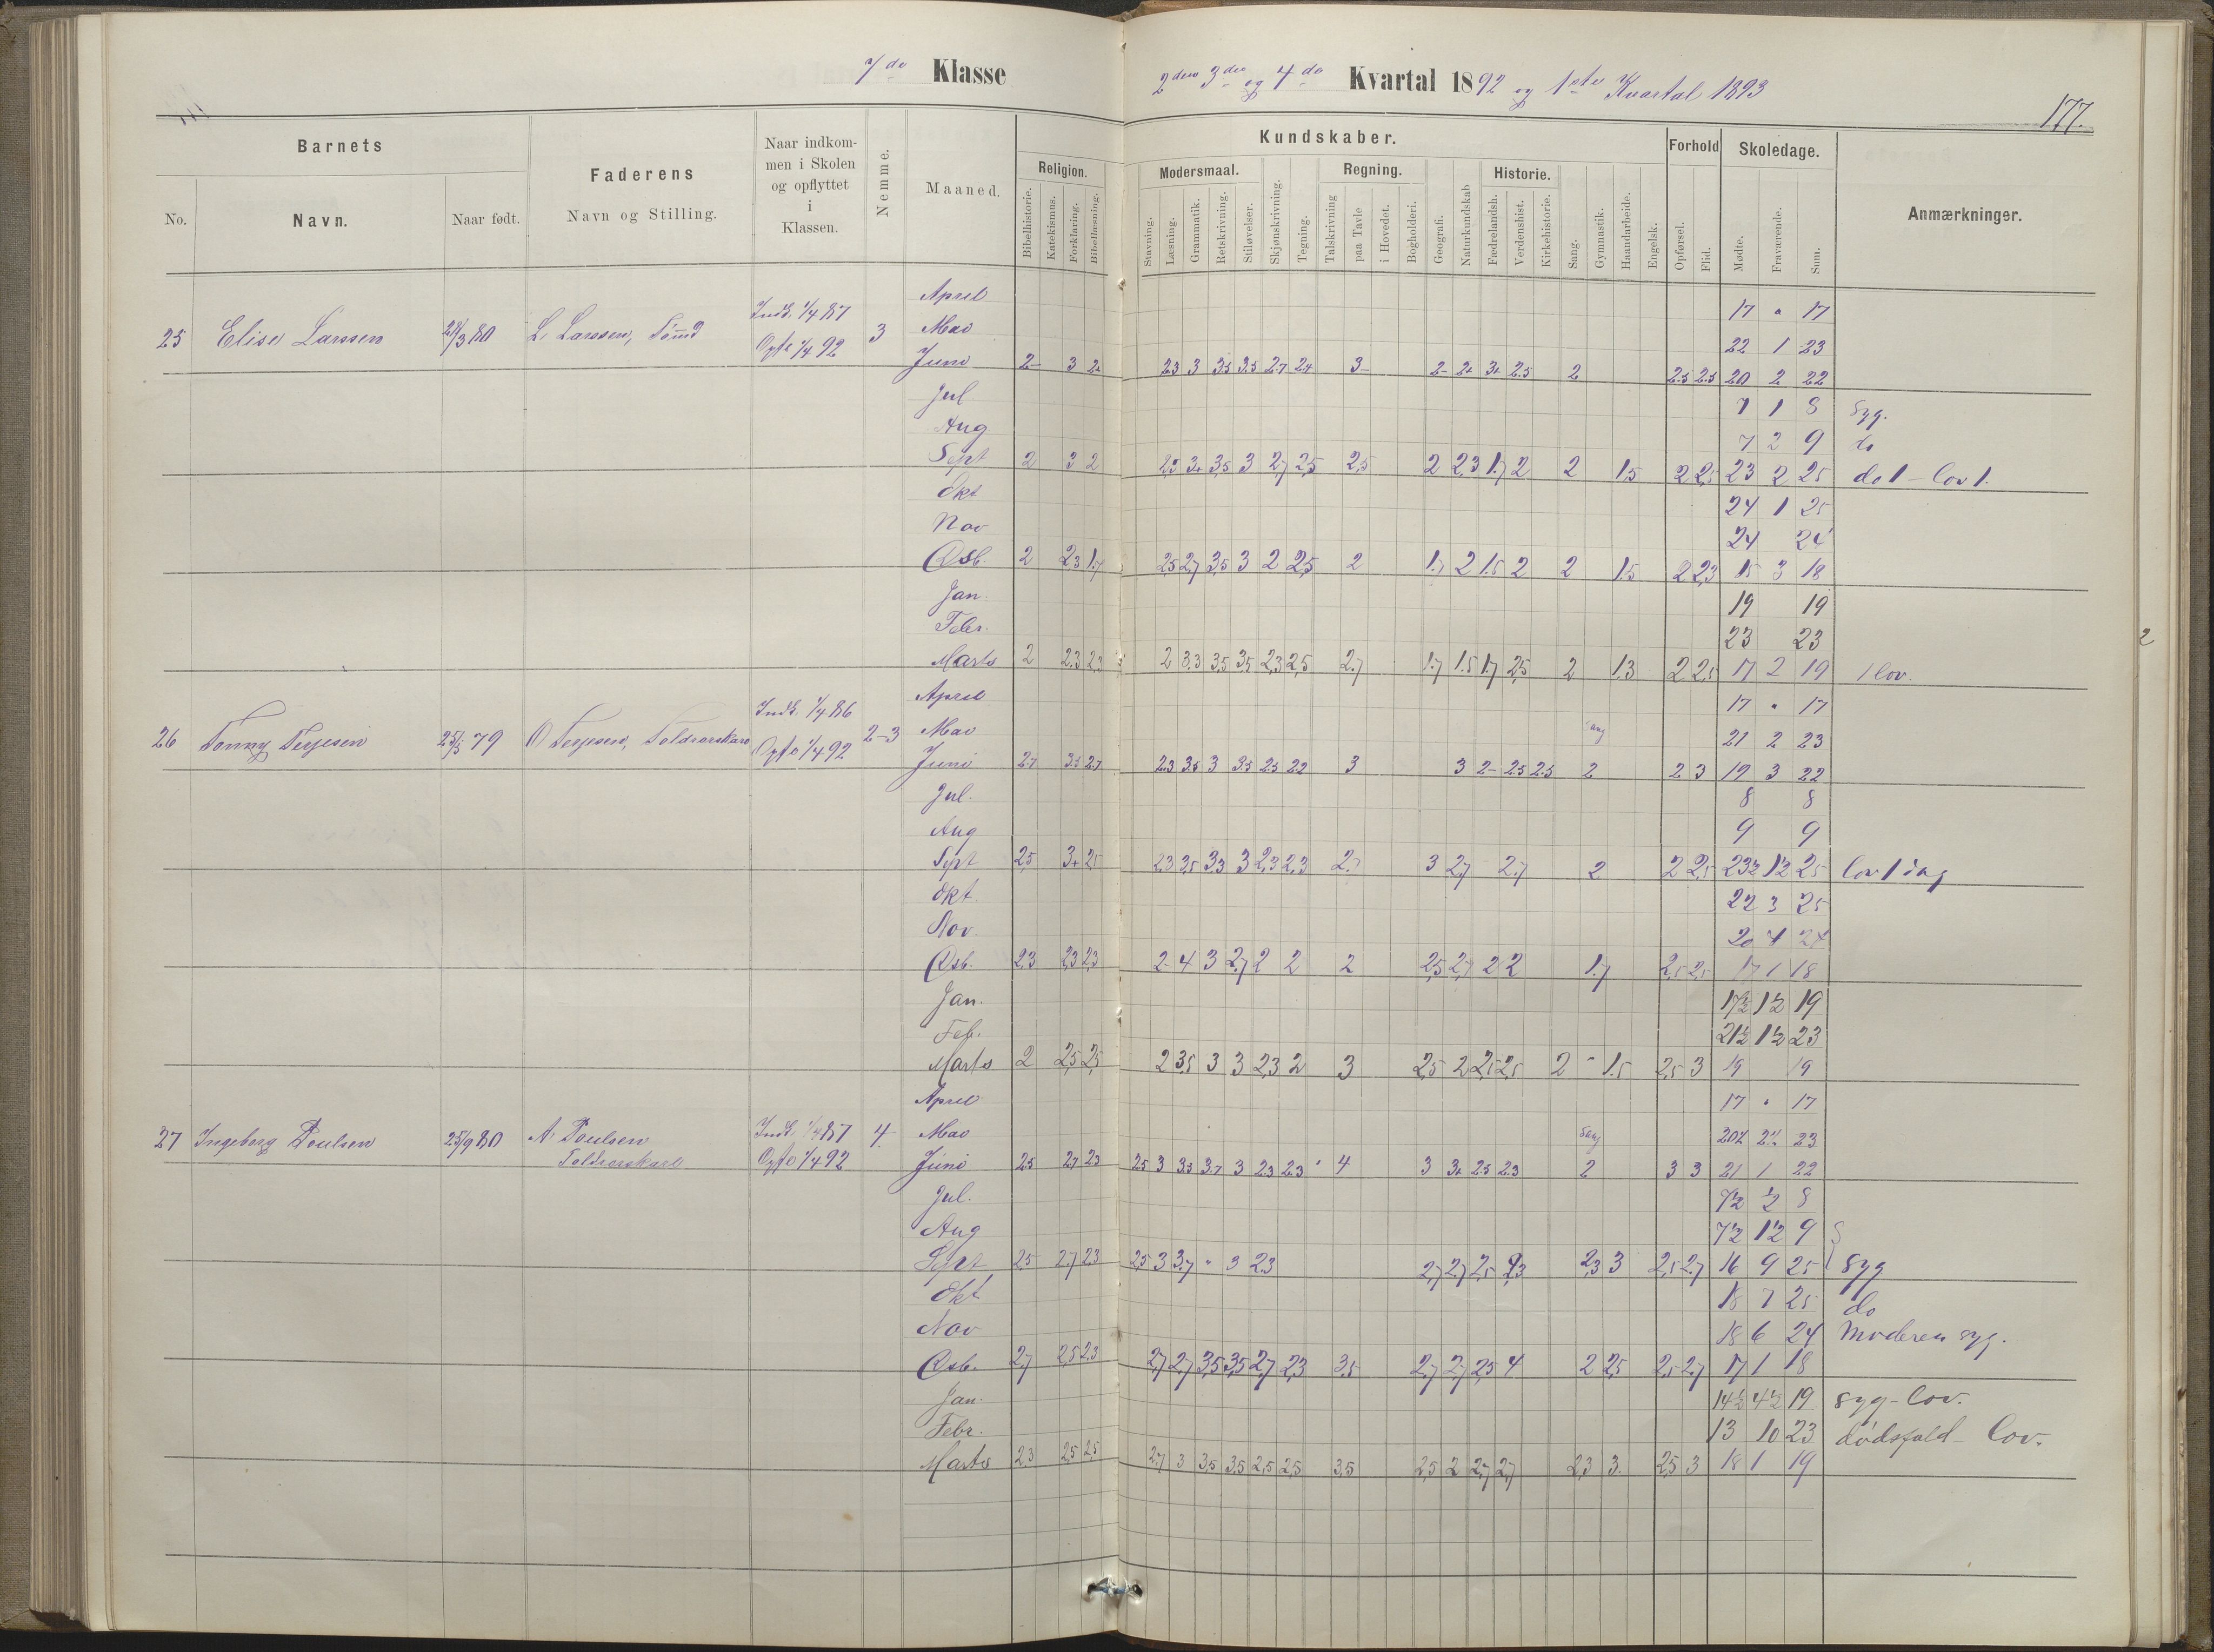 7de Klasse
2den 3die og 4de Kvartal 1892 og 1ste Kvartal 1893
177.
Barnets
Faderens
Naar indkommen i Skolen og opflyttet i Klassen.
Nemme.
Maaned.
Kundskaber.
Forhold
Skoledage.
Anmærkninger.
No.
Navn.
Naar født.
Navn og Stilling.
Religion.
Modersmaal.
Regning.
Historie.
Bibelhistorie.
Katekismus.
Forklaring.
Bibellæsning.
Stavning.
Læsning.
Grammatik.
Retskrivning.
Stiløvelser.
Skjønskrivning.
Tegning.
Talskrivning
paa Tavle
i Hovedet.
Bogholderi.
Geografi.
Naturkundskab
Fædrelandsh.
Verdenshist.
Kirkehistorie.
Sang.
Gymnastik.
Haandarbeide.
Engelsk.
Opførsel.
Flid.
Mødte.
Fraværende.
Sum.
April 17 " 17
25 Elise Larssen /3 80 L. Larssen, Indk. 1/4 87 Opfl. 1/4 92 3 Mai 22 1 23
Juni 2- 3 2+ 2.3 3 3.5 3.5 2.7 2.4 3- 2- 2+ 3+ 2.5 2 2.5 2.5 20 2 22
Jul 7 1 8 Syg.
Aug 7 2 9 do
Sept 2 3 2 2,3 3+ 3,5 3 2,7 2,5 2,5 2 2,3 1.7 2 2 1.5 2 2,5 23 2 25 do 1 - Lov 1.
Okt 24 1 25
Nov 24 24
Dsb. 2 2,3 1.7 2,5 2,7 3,5 3 2 2,5 2 1.7 2 1.5 2 2 1.5 2 2,3 15 3 18
Jan. 19 19
Febr. 23 23
Marts 2 2.3 2,3 2 3.3 3.5 3,5 2,3 2,5 2.7 1.7 1.5 1.7 2,5 2 1.3 2 2,5 17 2 19 1 lov.
April 17 " 17
26 Tonny Terjesen 25/5 79 O Terjesen, Toldrorskarl Indk. 1/4 86 Opfl 1/4 92 2-3 Mai Sang 21 2 23
Juni 2.7 3.5 2.7 2.3 3.5 3 3.5 2.5 2.2 3 3 2- 2.5 2.5 2 2 3 19 3 22
Jul. 8 8
Aug 9 9
Sept 2,5 3+ 2,5 2,3 3,5 3.3 3 2,3 2,3 2.7 3 2,7 2.7 2 2 2,5 23½ 1½ 25 Lov 1 dag
Okt. 22 3 25
Nov. 20 4 24
Dsb. 2.3 2,3 2,3 2- 4 3 2,7 2 2 2 2,5 2,7 2 2 1.7 2,5 2,5 17 1 18
Jan. 17½ 1½ 19
Feb. 21½ 1½ 23
Marts 2 2,5 2,5 2 3,5 3 3 2,3 2 3 2,5 2 2,5 2,5 2 - 1.5 2,5 3 19 19
April 17 " 17
27 Ingeborg Poulsen 25/9 80 A. Poulsen Indk. 1/4 87 4. Mai Sang 20½ 2½ 23
Toldrorskarl Opfl 1/4 92 Juni 2.5 2.7 2.3 2.5 3 3.5 3.7 3 2.3 2.3 " 4 3 3+ 2.5 2.3 2 3 3 21 1 22
Jul. 7½ ½ 8
Aug 7½ 1½ 9
Sept 2,5 2.7 2.3 2,5 3 3.7 " 3 2.3 2,7 2,7 2,5 2,3 2,3 3 2,5 2.7 16 9 25 Syg
Okt 18 7 25 do
Nov 18 6 24 Moderen syg.
Dsb. 2,7 2,5 2,3 2,7 2,7 3,5 3,5 2,7 2,3 3.5 2,7 2,7 2,5 4 2 2,5 2,5 2,7 17 1 18
Jan. 14½ 4½ 19 syg - lov.
Febr. 13 10 23 dødsfald - lov.
Marts 2.3 2,5 2,5 2,7 3 3,5 3,5 2,5 2,5 3,5 2,5 2 2,7 2,7 2,3 3. 2,5 3 18 1 19
2